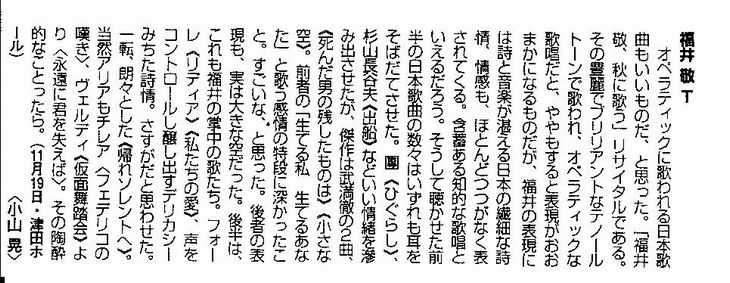 福井 敬 T
オペラティックに歌われる日本歌
曲もいいものだ、と思った。「福井
敬、秋に歌う」リサイタルである。
その豊麗でブリリアントなテノール
トーンで歌われ、オペラティックな
歌唱だと、ややもすると表現がおお
まかになるものだが、福井の表現に
は詩と音楽が湛える日本の繊細な詩
情、情感も、ほとんどつつがなく表
されてくる。含蓄ある知的な歌唱と
いえるだろう。そうして聴かせた前
半の日本歌曲の数々はいずれも耳を
そばだてさせた。團〈ひぐらし〉、
杉山長谷夫〈出船〉などいい情緒を滲
み出させたが、傑作は武満徹の2曲、
〈死んだ男の残したものは〉〈小さな
空〉。前者の「生てる私 生てるあな
た」と歌う感情の特段に深かったこ
と。すごいな、と思った。後者の表
現も、実は大きな空だった。後半は、
これも福井の掌中の歌たち。フォー
レ〈リディア〉〈私たちの愛〉、声を
コントロールし醸し出すデリカシー
みちた詩情。さすがだと思わせた。
一転、朗々とした〈帰れソレントへ〉。
当然アリアもチレア〈フェデリコの
嘆き〉、ヴェルディ〈仮面舞踏会〉よ
り〈永遠に君を失えば〉。その陶酔
的なことったら。(11月19日・津田ホ
ール) 〈小山 晃〉